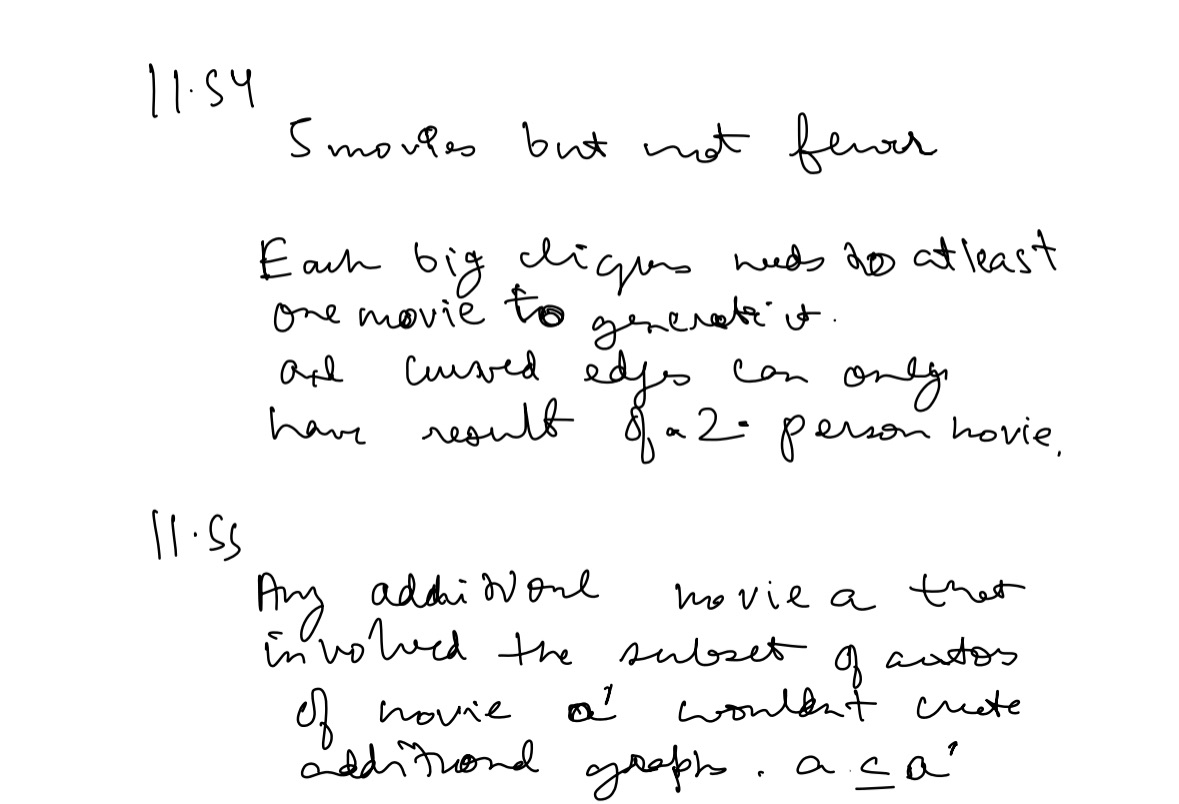 11.54
5 movies but not fewer
Each big cliques needs to atleast
one movie to generate it.
and curved edges can only
have result of a 2-person movie.
11.55
Any additional movie a that
involved the subset of actors
of movie a' wouldn't create
additional graph. a ⊆ a'